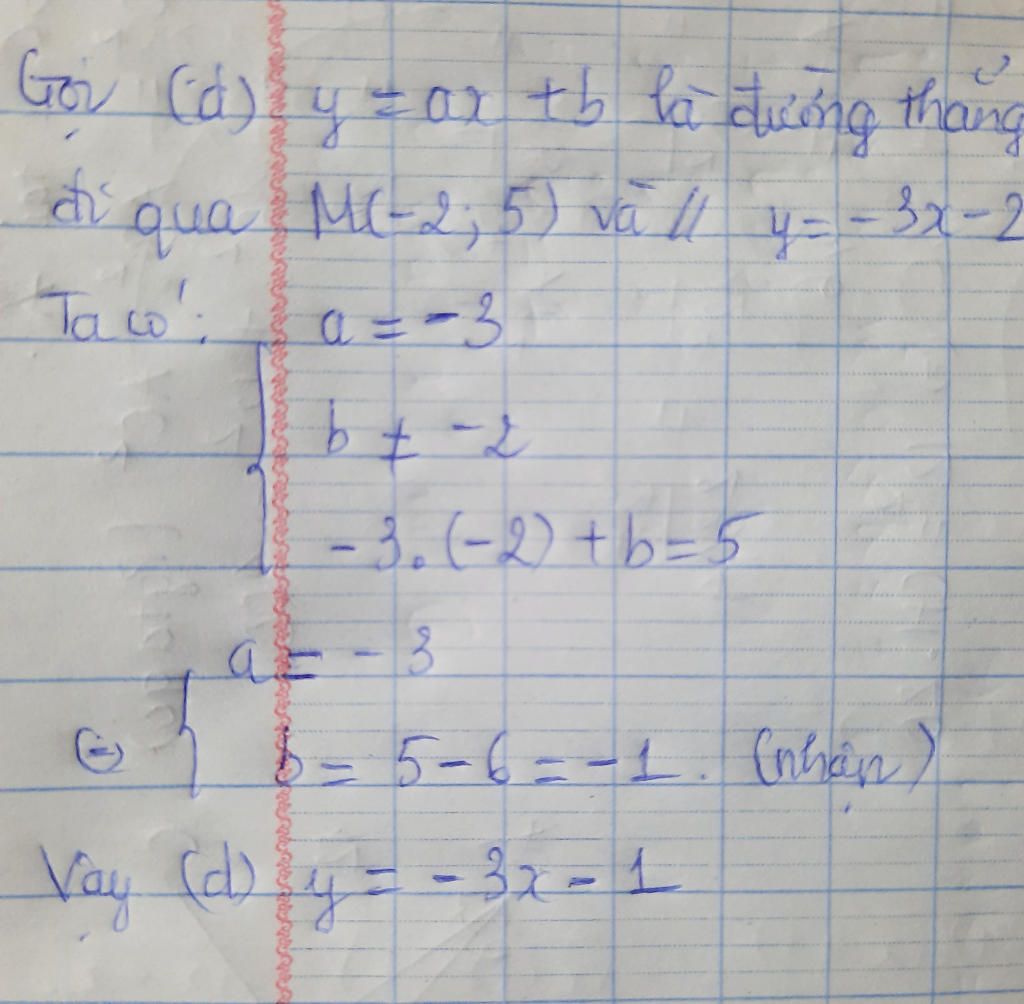 Gọi (d) y = ax + b là đường thẳng
đi qua M(-2; 5) và // y = -3x - 2
Ta có: a = -3
b ≠ -2
-3.(-2) + b = 5
a = -3
⇔ b = 5 - 6 = -1. (nhận)
Vậy (d) y = -3x - 1